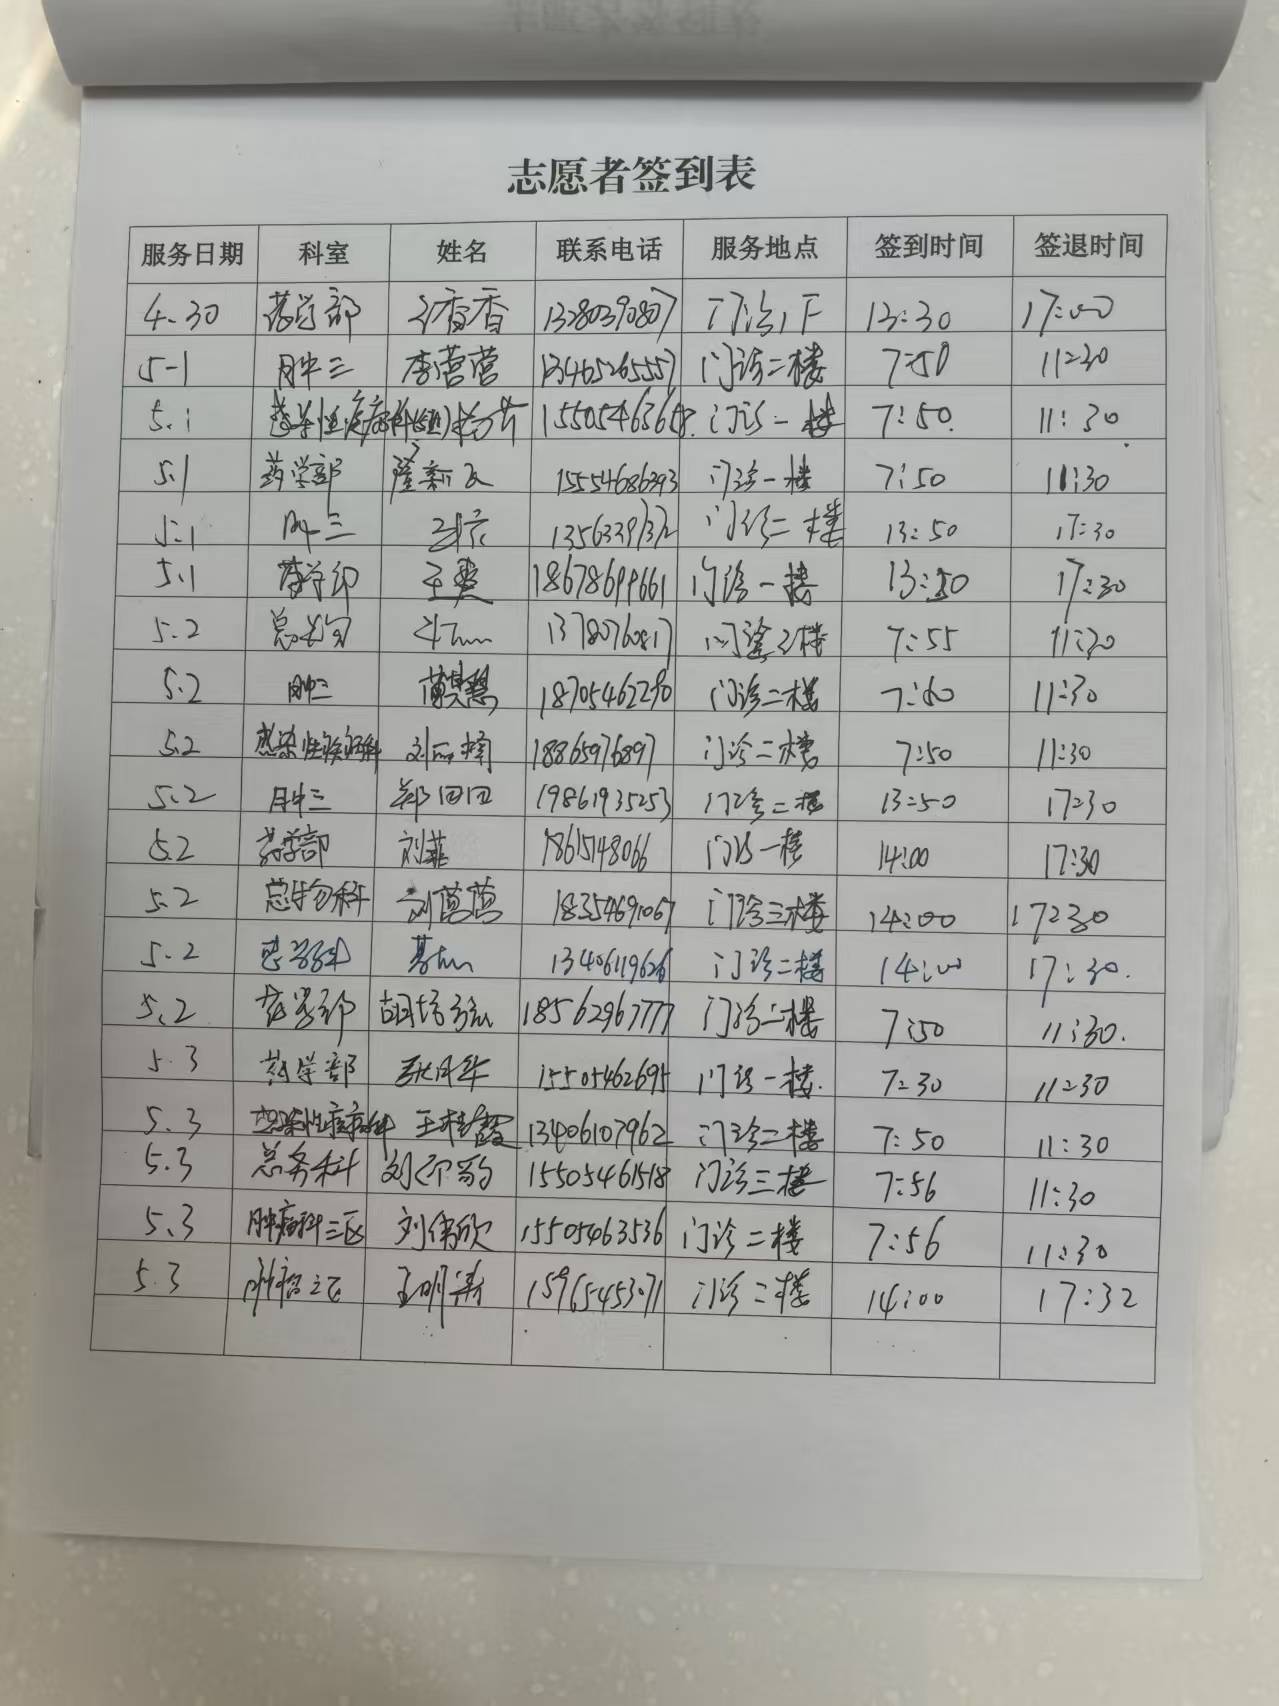 志愿者签到表
服务日期 科室 姓名 联系电话 服务地点 签到时间 签退时间
4.30 药学部 香香 13280390807 门诊1F 13:30 17:00
5-1 肿三 李营营 13465265557 门诊二楼 7:50 11:30
5.1 感染性疾病科 门诊一楼 7:50 11:30
5.1 药学部 隆新 15554686393 门诊一楼 7:50 11:30
5.1 肿三 门诊二楼 13:50 17:30
5.1 药学部 王爽 18678699661 门诊一楼 13:50 17:30
5.2 总务 13780760817 门诊三楼 7:55 11:30
5.2 肿三 18705462290 门诊二楼 7:50 11:30
5.2 感染性疾病科 刘丽楠 18865976897 门诊二楼 7:50 11:30
5.2 肿三 郑田田 19861935253 门诊二楼 13:50 17:30
5.2 药学部 刘菲 18615148066 门诊一楼 14:00 17:30
5.2 总务科 刘莺莺 18354691067 门诊三楼 14:00 17:30
5.2 13406119626 门诊二楼 14:00 17:30.
5.2 药学部 胡培 18562967777 门诊一楼 7:50 11:30.
5.3 药学部 耿月华 15505462695 门诊一楼. 7:30 11:30
5.3 感染性疾病科 王桂霞 13406107962 门诊二楼 7:50 11:30
5.3 总务科 刘 15505461518 门诊三楼 7:56 11:30
5.3 肿瘤科三区 刘伟欣 15505463536 门诊二楼 7:56 11:30
5.3 王明 15965453071 门诊二楼 14:00 17:32